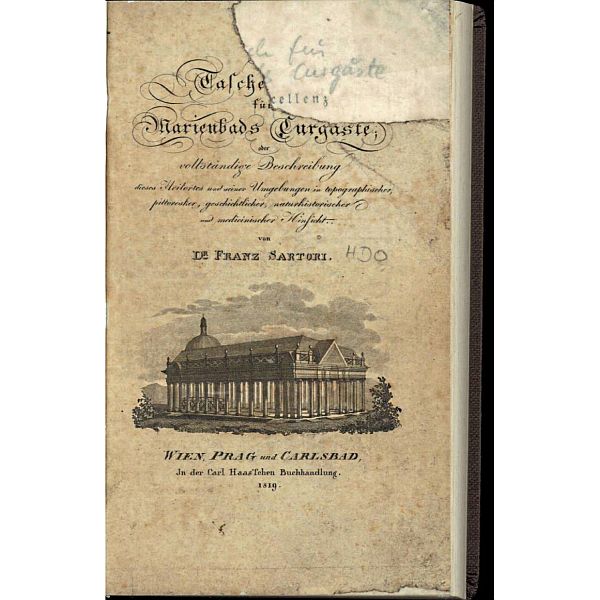 ch für
Curgäste
cellenz
Tasche
für
Marienbads Curgäste,
oder
vollständige Beschreibung
dieses Heilortes und seiner Umgebungen in topographischer,
pittoresker, geschichtlicher, naturhistorischer
und medicinischer Hinsicht.
von
DR. FRANZ SARTORI.
HDO
WIEN, PRAG und CARLSBAD,
In der Carl Haas'schen Buchhandlung.
1819.